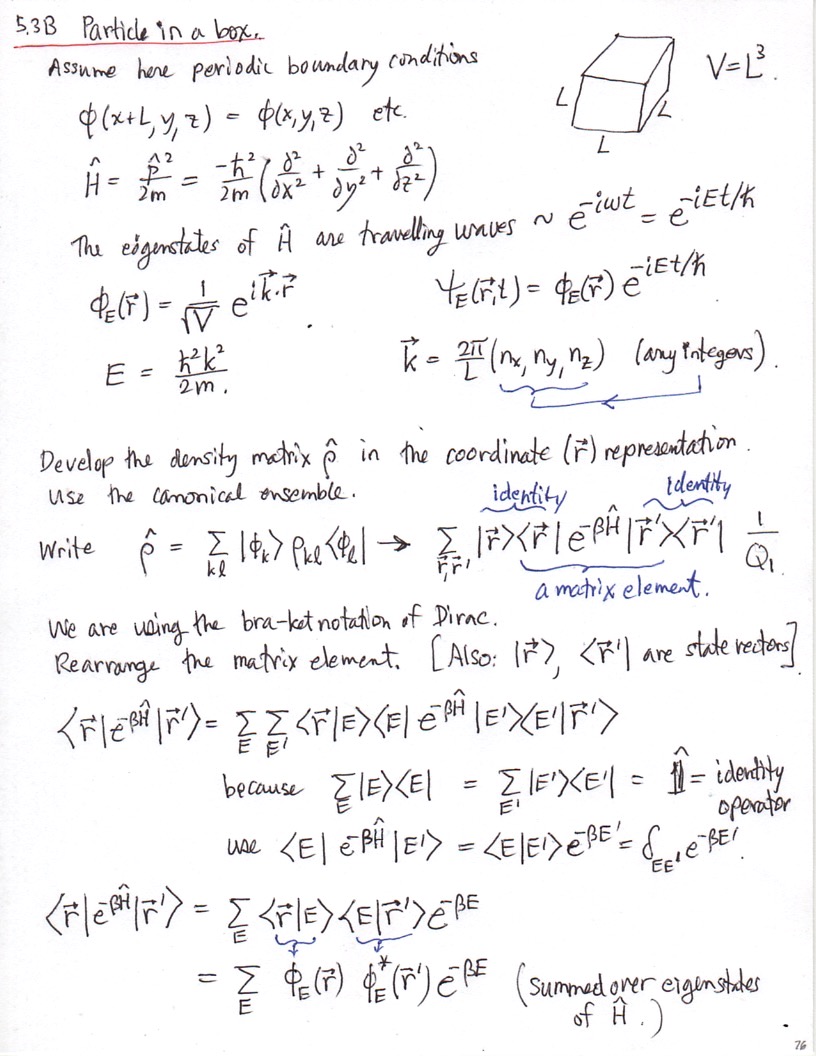 5.3B Particle in a box.
Assume here periodic boundary conditions
V = L³.
ϕ(x+L, y, z) = ϕ(x, y, z) etc.
L
L
L
Ĥ = p̂²/2m = -ħ²/2m (∂²/∂x² + ∂²/∂y² + ∂²/∂z²)
The eigenstates of Ĥ are travelling waves ~ e^{-iωt} = e^{-iEt/ħ}
ϕ_E(r⃗) = 1/√V e^{ik⃗·r⃗}. Ψ_E(r⃗,t) = ϕ_E(r⃗) e^{-iEt/ħ}
E = ħ²k²/2m. k⃗ = 2π/L (n_x, n_y, n_z) (any integers).
Develop the density matrix ρ̂ in the coordinate (r⃗) representation.
Use the canonical ensemble.
identity identity
Write ρ̂ = Σ_{kl} |ϕ_k> ρ_{kl} <ϕ_l| → Σ_{r⃗,r⃗'} |r⃗><r⃗| e^{-βĤ} |r⃗'><r⃗'| 1/Q₁
a matrix element.
We are using the bra-ket notation of Dirac.
Rearrange the matrix element. [Also: |r⃗>, <r⃗'| are state vectors]
<r⃗|e^{-βĤ}|r⃗'> = Σ_E Σ_{E'} <r⃗|E><E| e^{-βĤ} |E'><E'|r⃗'>
because Σ_E |E><E| = Σ_{E'} |E'><E'| = 1̂ = identity
operator
use <E| e^{-βĤ} |E'> = <E|E'> e^{-βE'} = δ_{EE'} e^{-βE'}.
<r⃗|e^{-βĤ}|r⃗'> = Σ_E <r⃗|E> <E|r⃗'> e^{-βE}
= Σ_E ϕ_E(r⃗) ϕ_E^*(r⃗') e^{-βE} (summed over eigenstates
of Ĥ.)
76